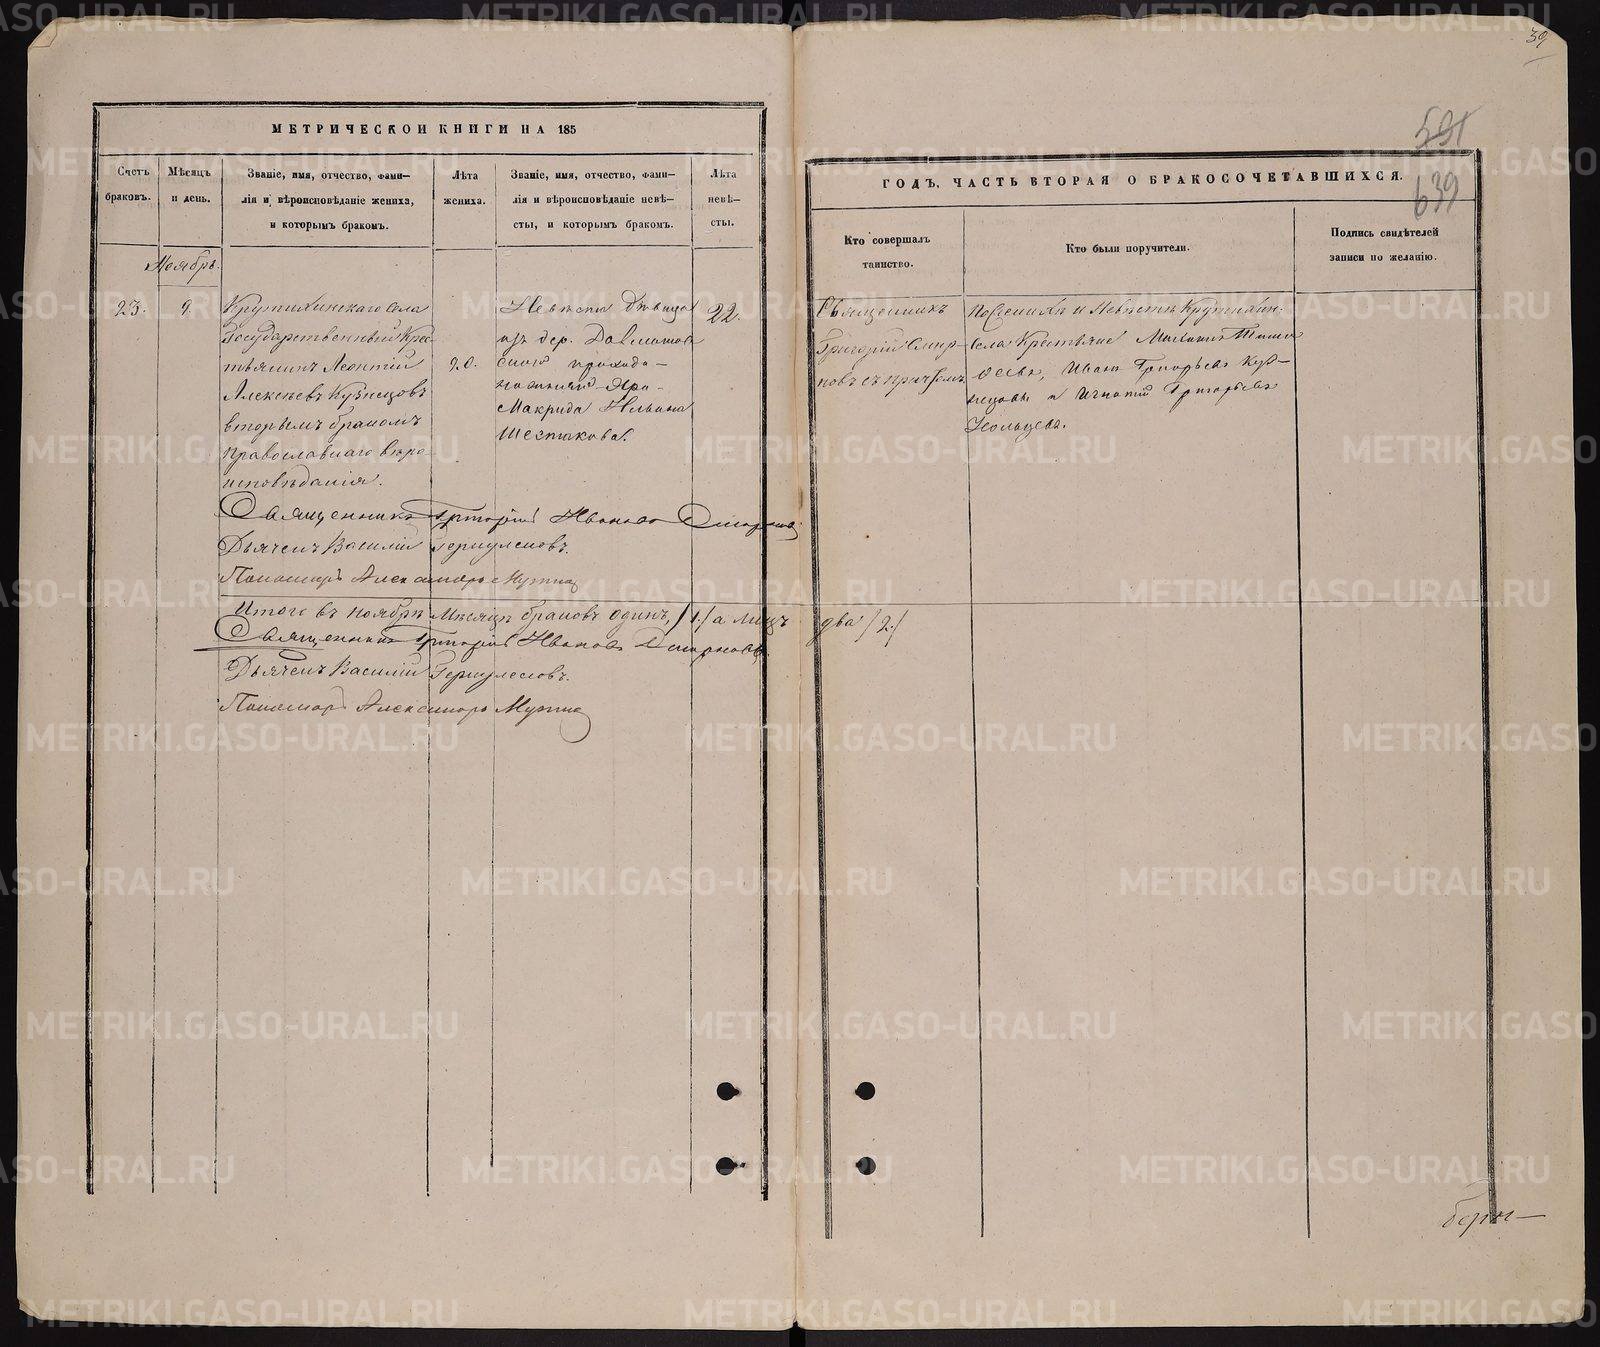 39
591
639
МЕТРИЧЕСКОЙ КНИГИ НА 185
Счетъ браковъ.
Мѣсяцъ и день.
Званіе, имя, отчество, фами-
лія и вѣроисповѣданіе жениха,
и которымъ бракомъ.
Лѣта жениха.
Званіе, имя, отчество, фами-
лія и вѣроисповѣданіе невѣ-
сты, и которымъ бракомъ.
Лѣта невѣ-
сты.
Ноябрь.
23.
9.
Крутихинскаго села
Государственный Крес
тьянинъ Леонтій
Алексѣевъ Кузнецовъ
вторымъ бракомъ
православнаго вѣро
исповѣданія.
20.
Невѣста Дѣвица
изъ дер.
Макрида Ильина
Шестакова.
22.
Священникъ Григорій Ивановъ Смирновъ
Дьячекъ Василій
Пономарь Александръ
Итого въ Ноябрѣ Мѣсяцѣ браковъ одинъ, /1./ а лицъ
Священникъ Григорій Ивановъ Смирновъ.
Дьячекъ Василій
Пономарь Александръ
ГОДЪ, ЧАСТЬ ВТОРАЯ О БРАКОСОЧЕТАВШИХСЯ.
Кто совершалъ
таинство.
Кто были поручители.
Подпись свидѣтелей
записи по желанію.
Священникъ
Григорій Смир-
новъ съ причтомъ
По Женихѣ и Невѣстѣ Крутихин:
села Крестьяне
Иванъ Григорьевъ Куз-
нецовы и Игнатій Григорьевъ
Усольцевъ.
два /2./
METRIKI.GASO-URAL.RU